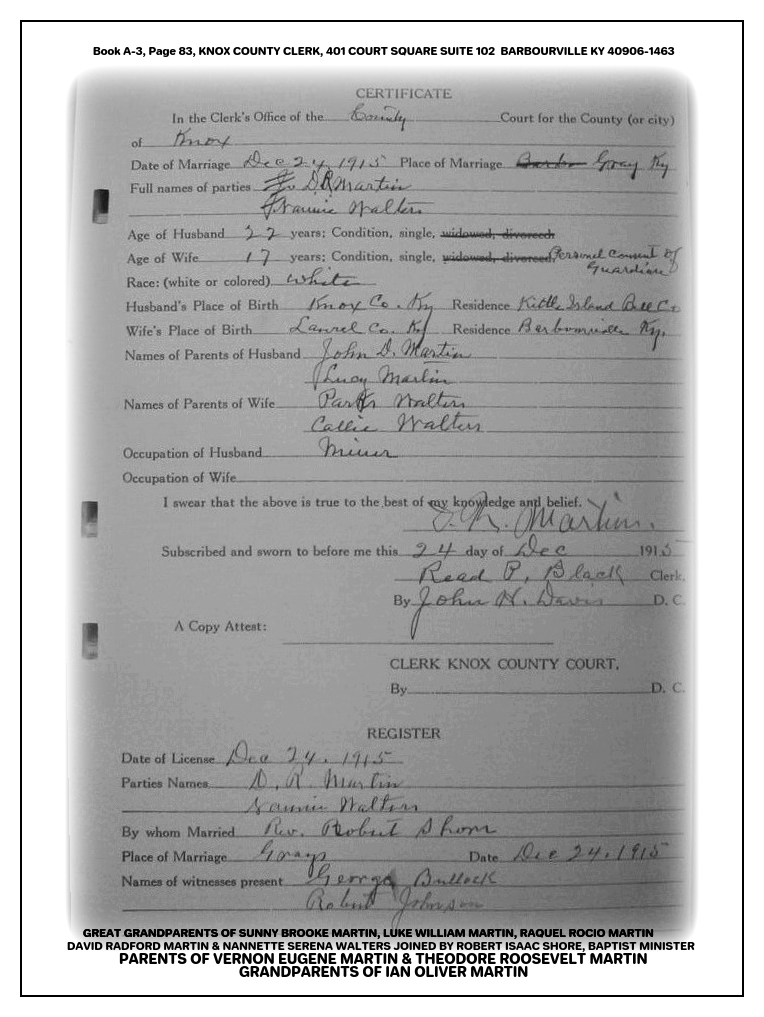 Book A-3, Page 83, KNOX COUNTY CLERK, 401 COURT SQUARE SUITE 102 BARBOURVILLE KY 40906-1463
CERTIFICATE
In the Clerk's Office of the County Court for the County (or city)
of Knox
Date of Marriage Dec 24, 1915 Place of Marriage Gray Ky
Full names of parties D. R. Martin
Nannie Walters
Age of Husband 22 years; Condition, single, widowed, divorced
Age of Wife 17 years; Condition, single, widowed, divorced Personal Consent of
Guardian
Race: (white or colored) White
Husband's Place of Birth Knox Co. Ky Residence Kettle Island Bell Co
Wife's Place of Birth Laurel Co. Ky Residence Barbourville Ky.
Names of Parents of Husband John D. Martin
Lucy Martin
Names of Parents of Wife Walters
Callie Walters
Occupation of Husband Miner
Occupation of Wife
I swear that the above is true to the best of my knowledge and belief.
D. R. Martin.
Subscribed and sworn to before me this 24 day of Dec 1915
Read P. Black Clerk.
By John H. Davis D. C.
A Copy Attest:
CLERK KNOX COUNTY COURT.
By D. C.
REGISTER
Date of License Dec 24. 1915
Parties Names D. R. Martin
Nannie Walters
By whom Married Rev. Robert Shore
Place of Marriage Grays Date Dec 24, 1915
Names of witnesses present George Bullock
Robert Johnson
GREAT GRANDPARENTS OF SUNNY BROOKE MARTIN, LUKE WILLIAM MARTIN, RAQUEL ROCIO MARTIN
DAVID RADFORD MARTIN & NANNETTE SERENA WALTERS JOINED BY ROBERT ISAAC SHORE, BAPTIST MINISTER
PARENTS OF VERNON EUGENE MARTIN & THEODORE ROOSEVELT MARTIN
GRANDPARENTS OF IAN OLIVER MARTIN